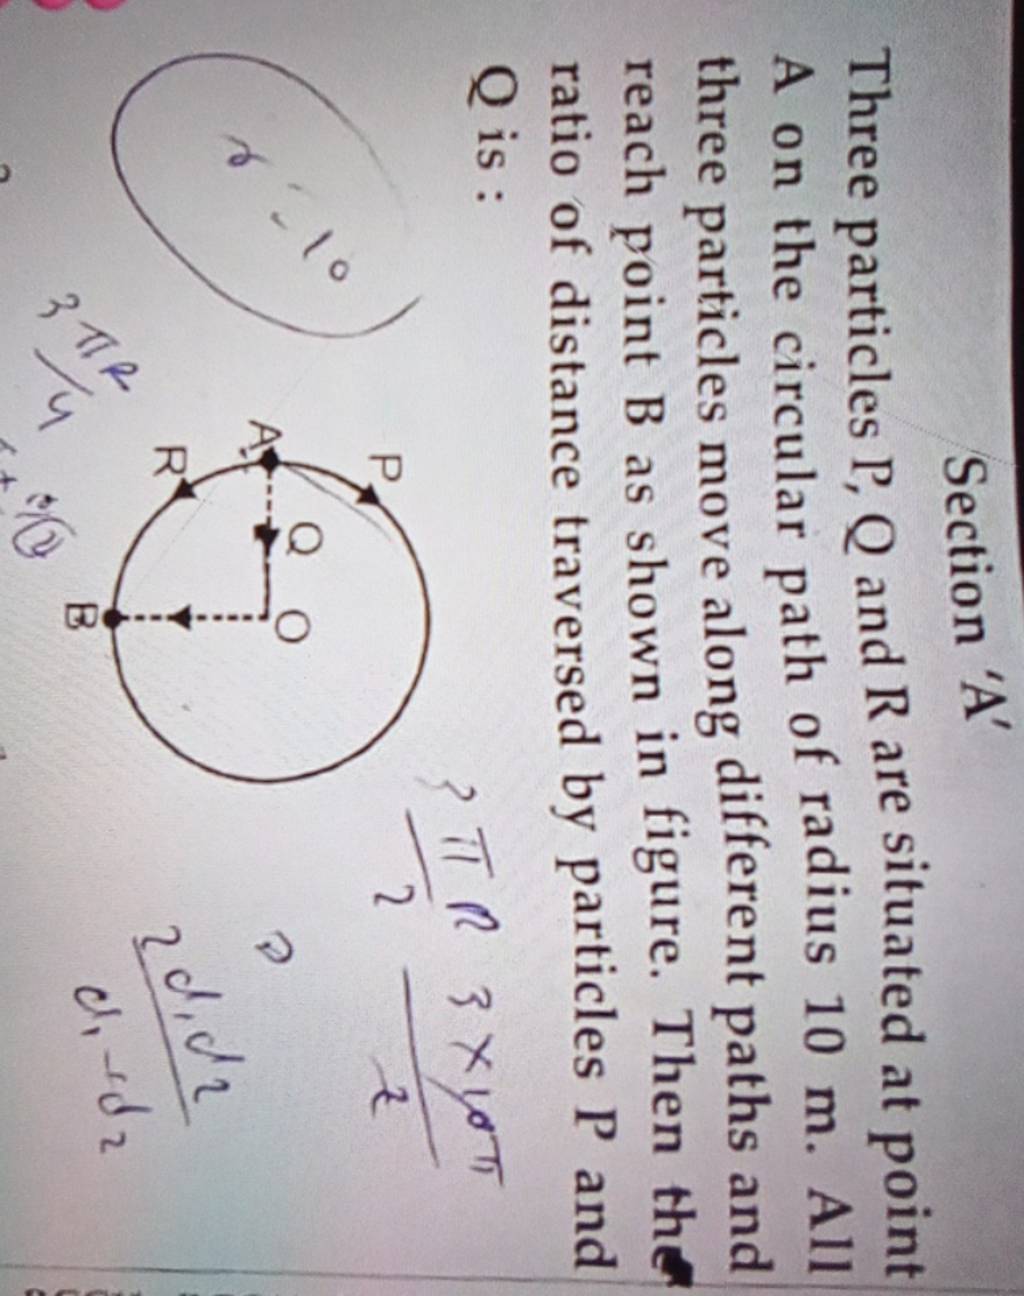 Section 'A'
Three particles P, Q and R are situated at point
A on the circular path of radius 10 m. All
three particles move along different paths and
reach point B as shown in figure. Then the
ratio of distance traversed by particles P and
Q is :
P
Q
A
O
R
B
3πR
4
3πR
2
3×10π
2
2d₁d₂
d₁-d₂